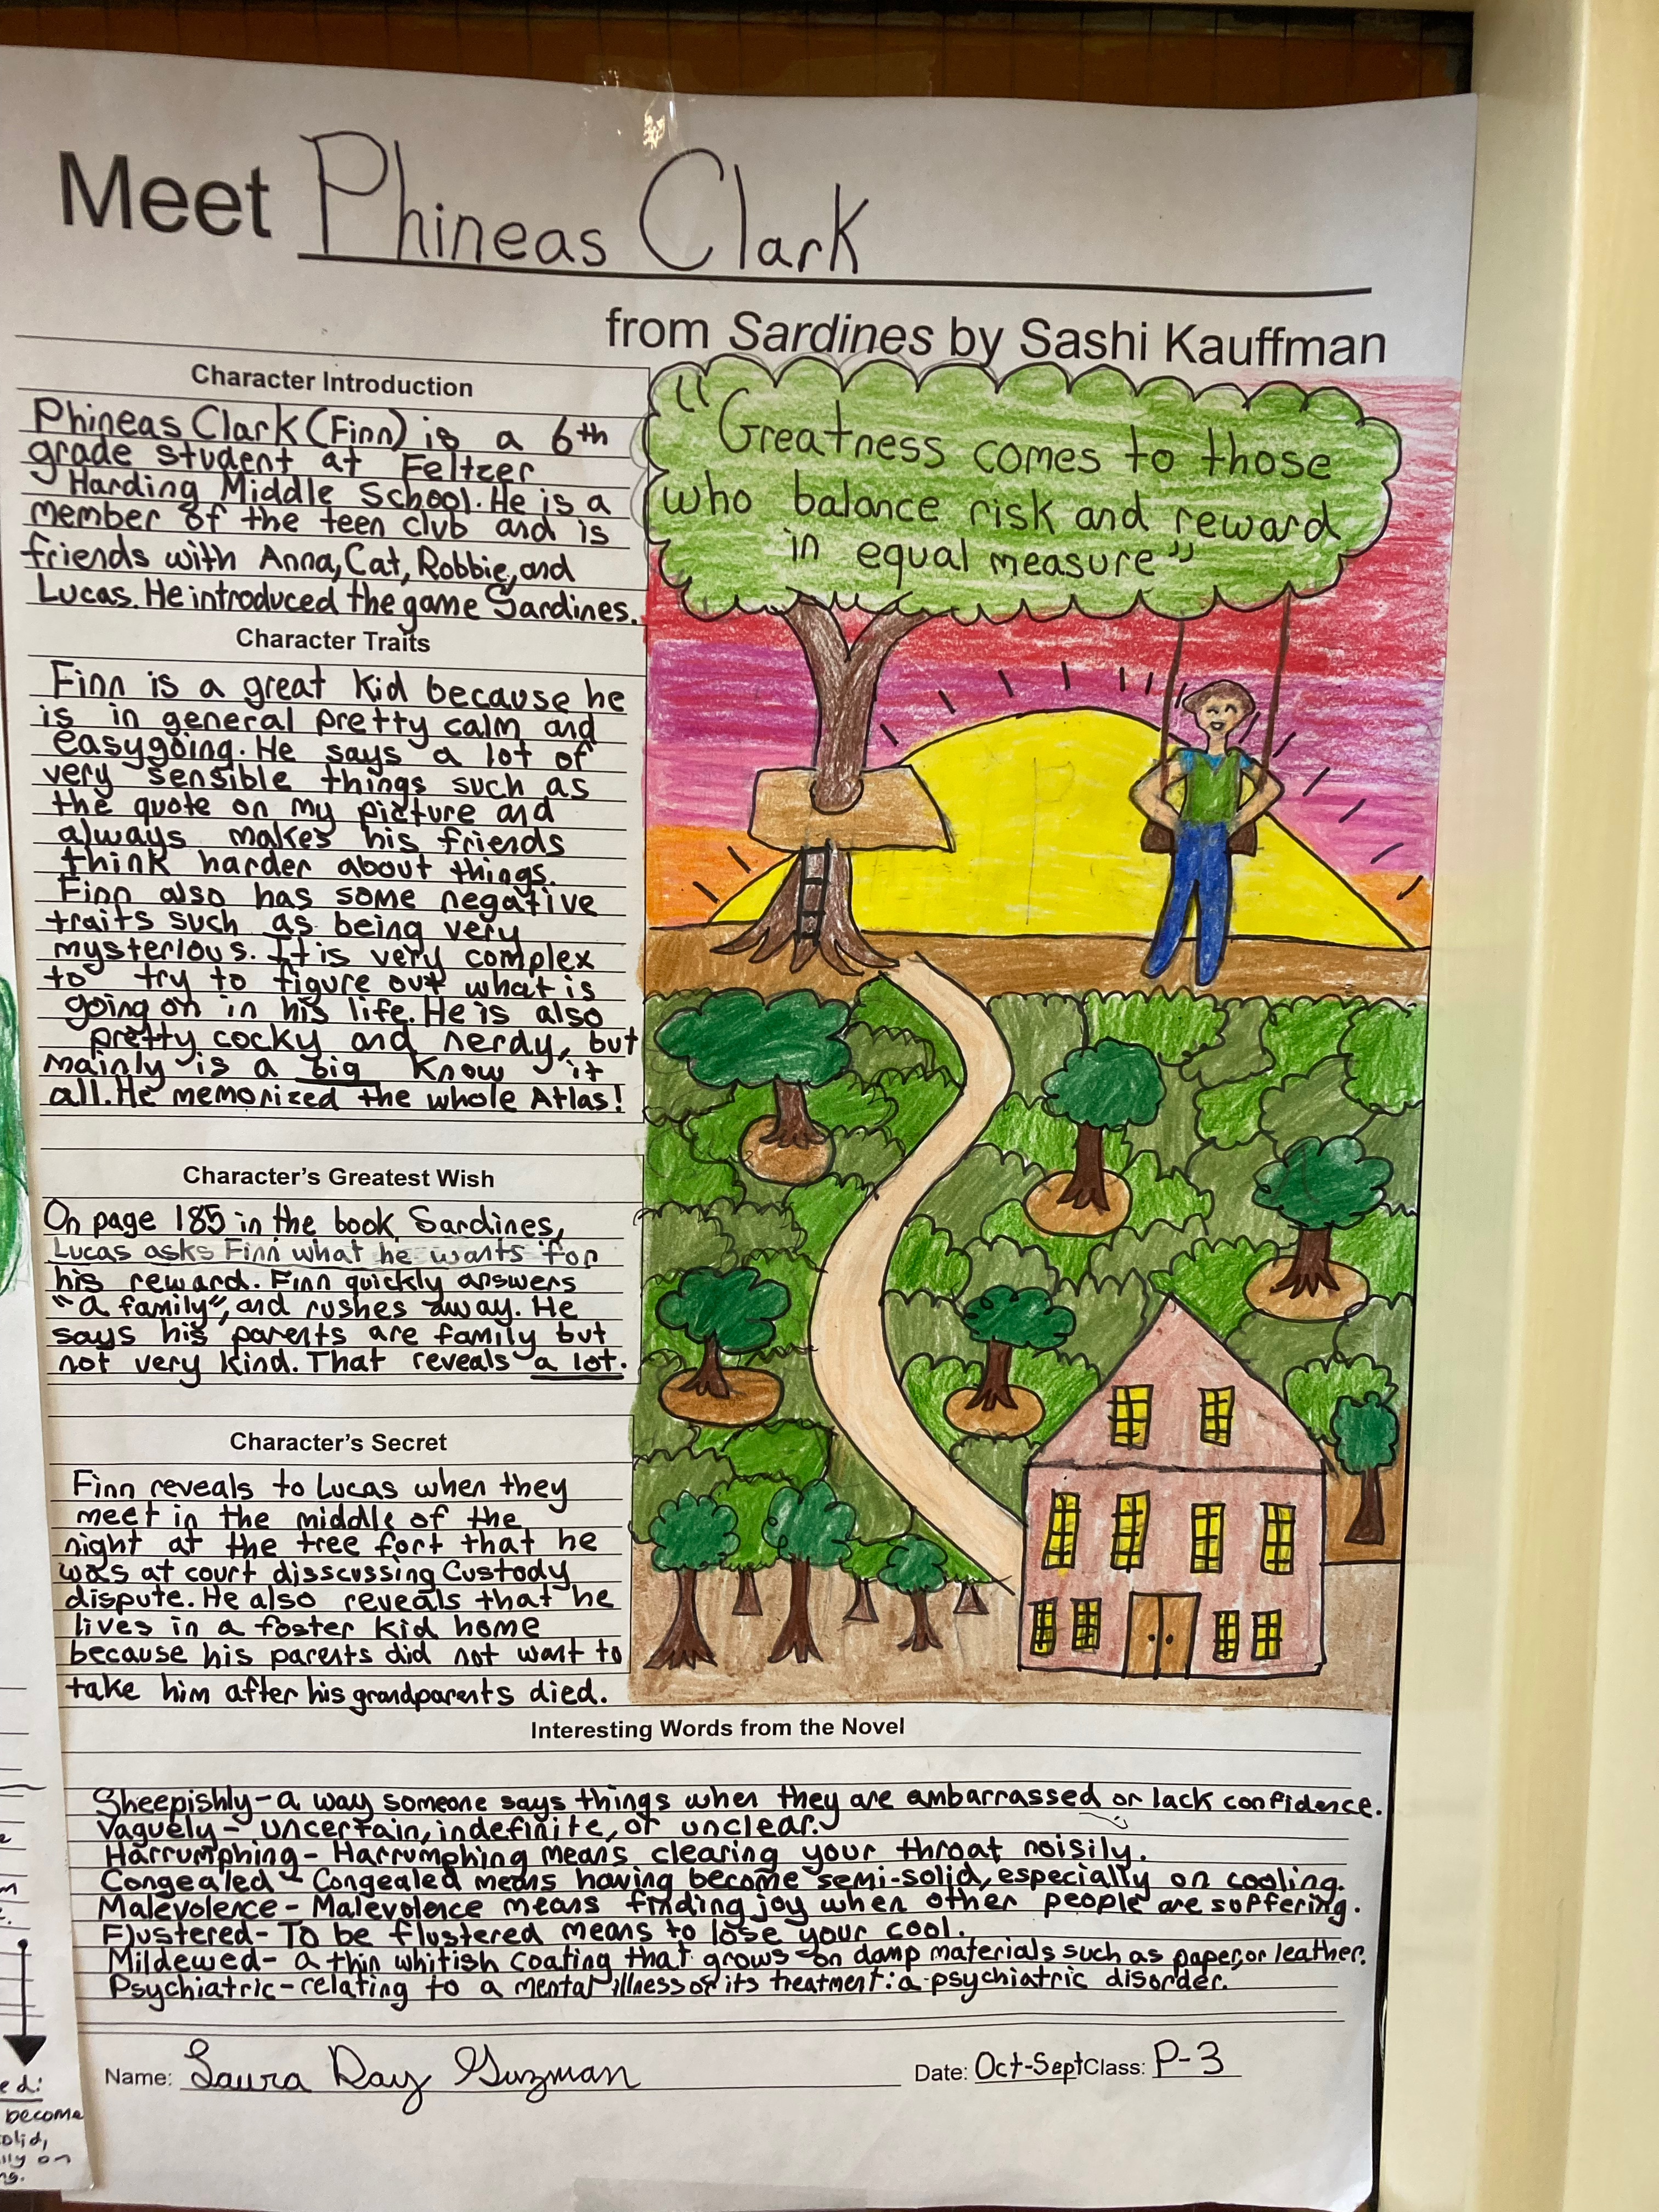 Meet Phineas Clark
from Sardines by Sashi Kauffman
Character Introduction
Phineas Clark (Finn) is a 6th
grade student at Feltzer
Harding Middle School. He is a
member of the teen club and is
friends with Anna, Cat, Robbie, and
Lucas. He introduced the game Sardines.
Character Traits
Finn is a great kid because he
is in general pretty calm and
easygoing. He says a lot of
very sensible things such as
the quote on my picture and
always makes his friends
think harder about things.
Finn also has some negative
traits such as being very
mysterious. It is very complex
to try to figure out what is
going on in his life. He is also
pretty cocky and nerdy, but
mainly is a big know it
all. He memorized the whole Atlas!
Character's Greatest Wish
On page 185 in the book, Sardines,
Lucas asks Finn what he wants for
his reward. Finn quickly answers
"a family", and rushes away. He
says his parents are family but
not very kind. That reveals a lot.
Character's Secret
Finn reveals to Lucas when they
meet in the middle of the
night at the tree fort that he
was at court disscussing Custody
dispute. He also reveals that he
lives in a foster kid home
because his parents did not want to
take him after his grandparents died.
"Greatness comes to those
who balance risk and reward
in equal measure"
Interesting Words from the Novel
Sheepishly - a way someone says things when they are ambarrassed or lack confidence.
Vaguely - uncertain, indefinite, or unclear.
Harrumphing - Harrumphing means clearing your throat noisily.
Congealed - Congealed means having become semi-solid, especially on cooling.
Malevolence - Malevolence means finding joy when other people are suffering.
Flustered - To be flustered means to lose your cool.
Mildewed - a thin whitish coating that grows on damp materials such as paper, or leather.
Psychiatric - relating to a mental illness or its treatment: a psychiatric disorder.
Name: Laura Day Guzman
Date: Oct-Sept Class: P-3
become